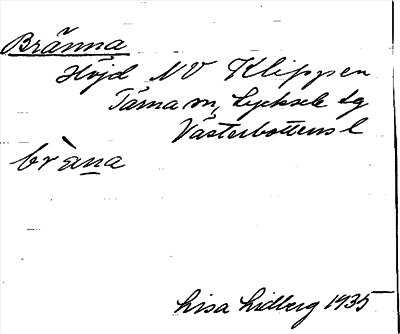 Bränna
Höjd NV Klippen
Tärna sn, Lycksele lg
Västerbottens l
bràna
Lisa Lidberg 1935